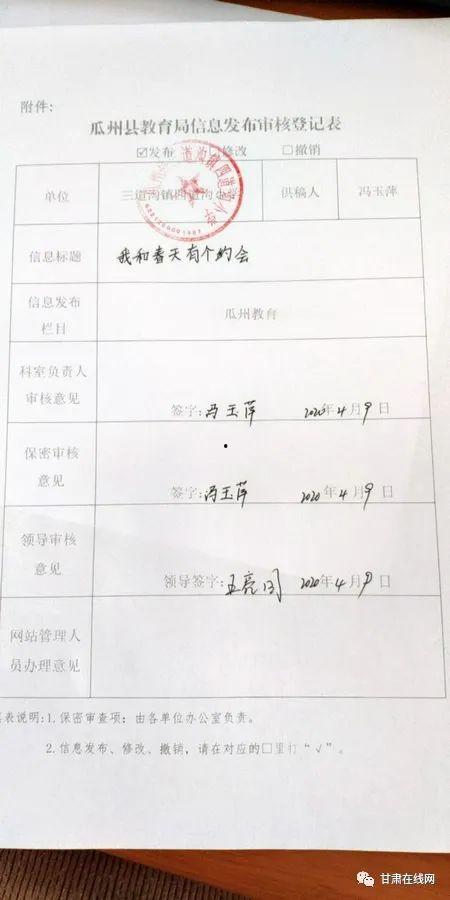 附件:
瓜州县教育局信息发布审核登记表
☑发布 修改 □撤销
单位 三道沟镇四道沟小学 供稿人 冯玉萍
信息标题 我和春天有个约会
信息发布
栏目
瓜州教育
科室负责人
审核意见
签字:冯玉萍 2020年4月9日
保密审核
意见
签字:冯玉萍 2020年4月9日
领导审核
意见
领导签字: 2020年4月9日
网站管理人
员办理意见
表说明:1.保密审查项: 由各单位办公室负责。
2.信息发布、修改、撤销, 请在对应的□里打“√”。
甘肃在线网